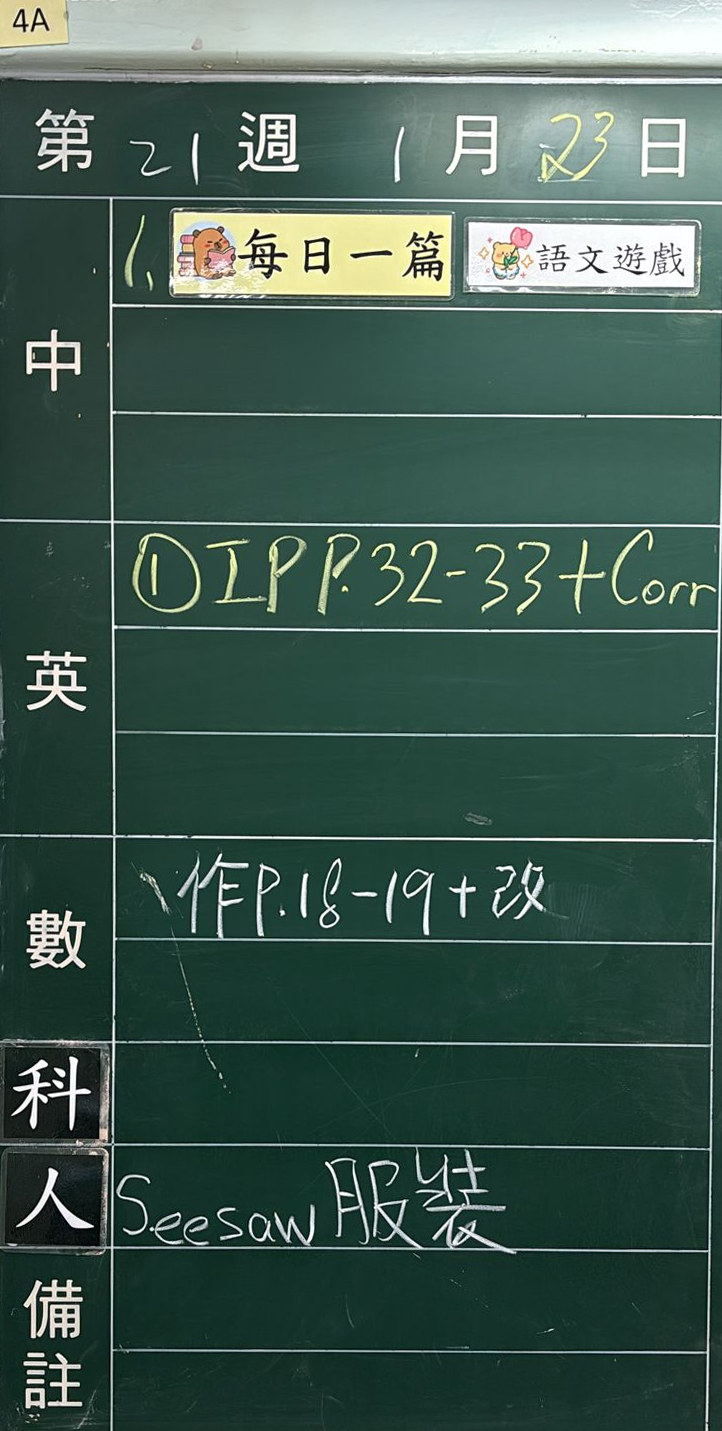 4A
第 21 週 1 月 23 日
中
1. 每日一篇 語文遊戲
英
① IP P.32-33+Corr
數
作P.18-19+改
科
人
Seesaw 服裝
備註